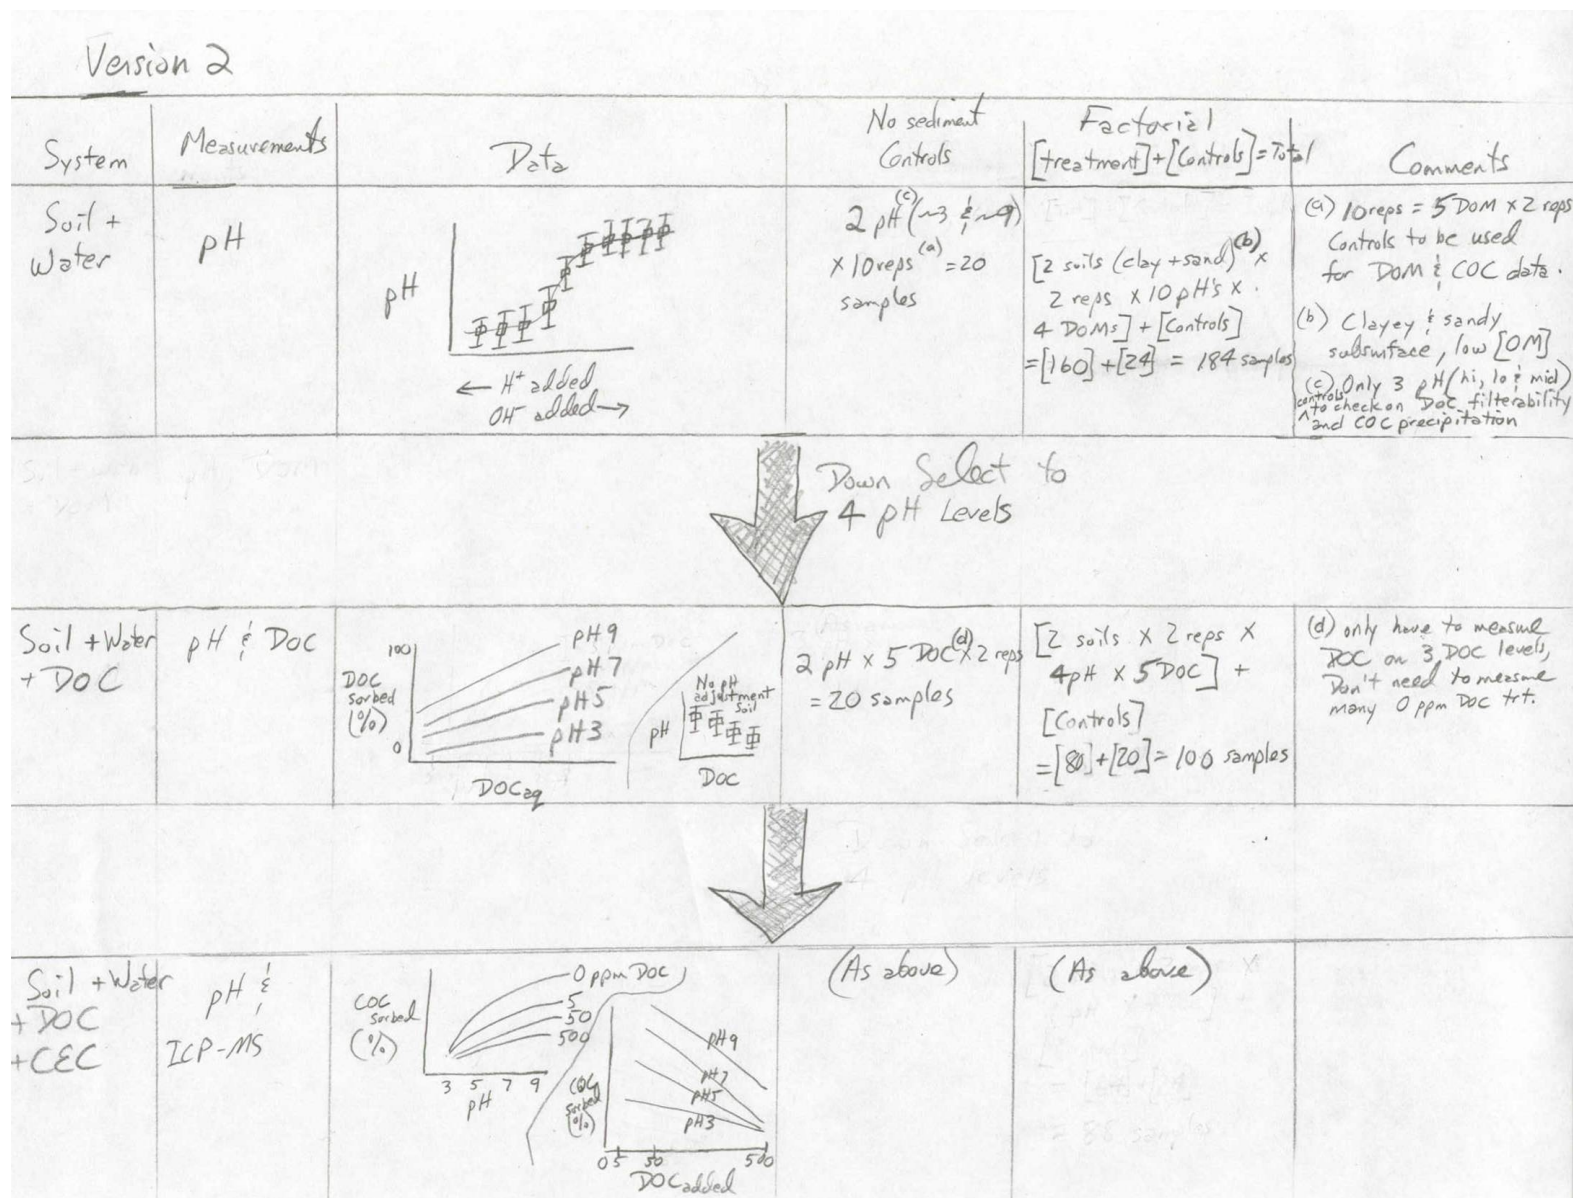 Version 2
System
Measurements
Data
No sediment
Controls
Factorial
[treatment]+[Controls]=Total
Comments
Soil +
Water
pH
pH
← H+ added
OH- added →
2 pH (c) (~3 & ~9)
× 10 reps (a) = 20
samples
[2 soils (clay + sand) (b) ×
2 reps × 10 pH's ×
4 DOMs] + [Controls]
= [160] + [24] = 184 samples
(a) 10 reps = 5 DOM × 2 reps
Controls to be used
for DOM & COC data.
(b) Clayey & sandy
subsurface, low [OM]
(c) Only 3 pH (hi, lo & mid)
controls
^ to check on DOC filterability
and COC precipitation
Down Select to
4 pH Levels
Soil + Water
+ DOC
pH & DOC
100
DOC
sorbed
(%)
0
pH 9
pH 7
pH 5
pH 3
DOCaq
No pH
adjustment
Soil
pH
DOC
2 pH × 5 DOC (d) × 2 reps
= 20 samples
[2 soils × 2 reps ×
4 pH × 5 DOC] +
[Controls]
= [80] + [20] = 100 samples
(d) only have to measure
DOC on 3 DOC levels,
Don't need to measure
many 0 ppm DOC trt.
Soil + Water
+ DOC
+ CEC
pH &
ICP-MS
COC
sorbed
(%)
0 ppm DOC
5
50
500
3 5 7 9
pH
COC
sorbed
(%)
pH 9
pH 7
pH 5
pH 3
0 5 50 500
DOC added
(As above)
(As above)